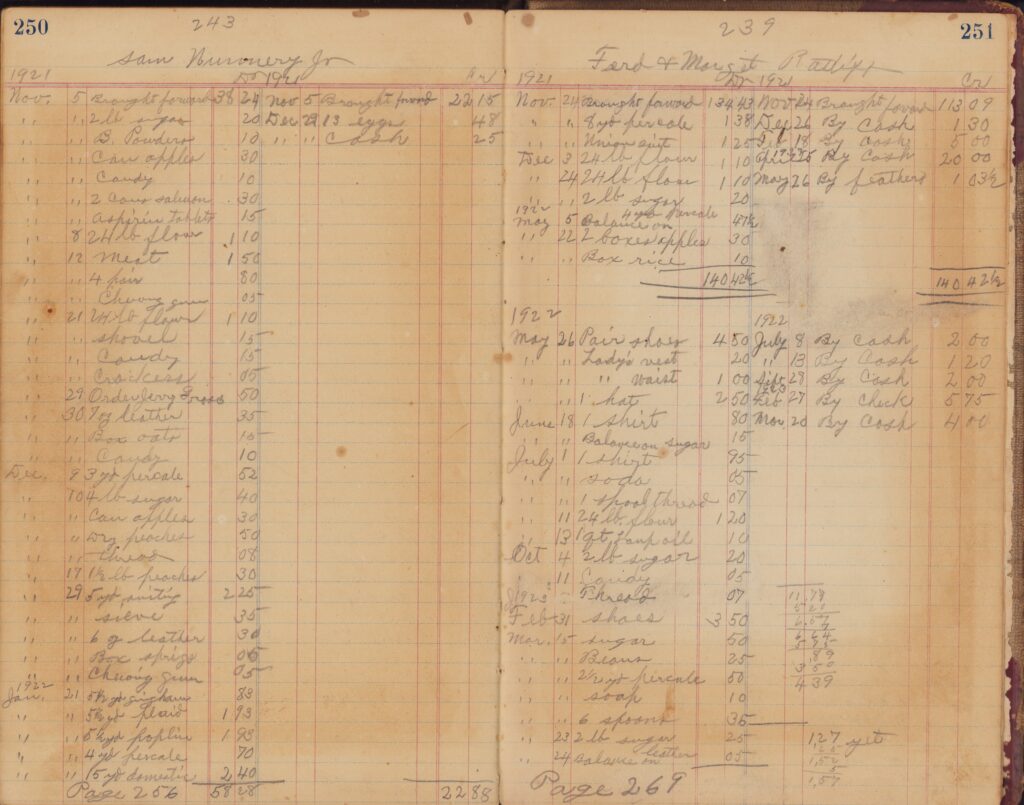 250
243
Sam Nunnery Jr
1921 Dr 1921 Cr
Nov. 5 Brought forward 38 24 Nov 5 Brought forwd 22 15
" " 2 lb sugar 20 Dec 29 13 eggs 48
" " B. Powders 10 " " Cash 25
" " Can apples 30
" " Candy 10
" " 2 Cans salmon 30
" " Aspirin tablets 15
" 8 24 lb flour 1 10
" 12 Meat 1 50
" " 4 pair 80
" " Chewing gum 05
" 21 24 lb flour 1 10
" " Shovel 15
" " Candy 15
" " Crackers 05
" 29 Order 50
" 30 7 oz leather 35
" " Box oats 15
" " Candy 10
Dec. 9 3 yd percale 52
" 10 4 lb sugar 40
" " Can apples 30
" " Dry peaches 50
" " thread 08
" 17 1½ lb peaches 30
" 29 5 yd suiting 2 25
" " sieve 35
" " 6 oz leather 30
" " Box 05
" " Chewing gum 05
1922
Jan. 21 5½ yd gingham 83
" " 5½ yd plaid 1 93
" " 5½ yd poplin 1 93
" " 4 yd percale 70
" " 15 yd domestic 2 40
Page 256 58 28 22 88
251
239
Ferd & Margit Ratliff
1921 Dr 1921 Cr
Nov. 24 Brought forward 134 43 Nov 24 Brought forwd 113 09
" " 8 yd percale 1 38 Dec 26 By Cash 1 30
" " Union suit 1 25 Feb 18 By Cash 5 00
Dec 3 24 lb flour 1 10 By Cash 20 00
" 24 24 lb flour 1 10 May 26 By feathers 1 03½
" " 2 lb sugar 20
1922 4 yd percale
May 5 Balance on 47½
" 22 2 boxes apples 30
" " Box rice 10
140 42½ 140 42½
1922 1922
May 26 Pair shoes 4 50 July 8 By Cash 2 00
" " Lady's vest 20 " 13 By Cash 1 20
" " " waist 1 00 Sept 28 By Cash 2 00
1923
" " 1 hat 2 50 Feb 27 By Check 5 75
June 18 1 Shirt 80 Mar 20 By Cash 4 00
" " Balance on sugar 15
July 1 1 shirt 95
" " soda 05
" " 1 spool thread 07
" 11 24 lb flour 1 20
" 13 1 qt lamp oil 10
Oct 4 2 lb sugar 20
" 11 Candy 05
1923 Thread 07 11,79
Feb 31 shoes 3 50
Mar. 15 sugar 50
" " Beans 25 3 50
" " 2½ yd percale 50 4 39
" " soap 10
" " 6 spoons 35
" 23 2 lb sugar 25 1,27 yet
" 24 Balance on leather 05 1,52
1,57
Page 269